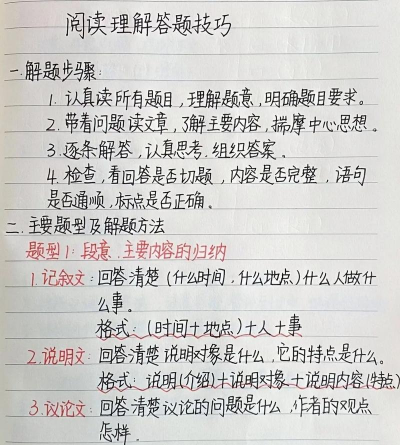 阅读理解答题技巧
一.解题步骤:
1. 认真读所有题目,理解题意,明确题目要求。
2. 带着问题读文章,了解主要内容,揣摩中心思想。
3. 逐条解答,认真思考.组织答案。
4. 检查,看回答是否切题,内容是否完整,语句
是否通顺,标点是否正确。
二.主要题型及解题方法
题型1: 段意.主要内容的归纳
1.记叙文: 回答清楚(什么时间,什么地点)什么人做什
么事。
格式:(时间+地点)+人+事
2.说明文: 回答清楚说明对象是什么,它的特点是什么。
格式: 说明(介绍)+说明对象+说明内容(特点)
3.议论文: 回答清楚议论的问题是什么,作者的观点
怎样.